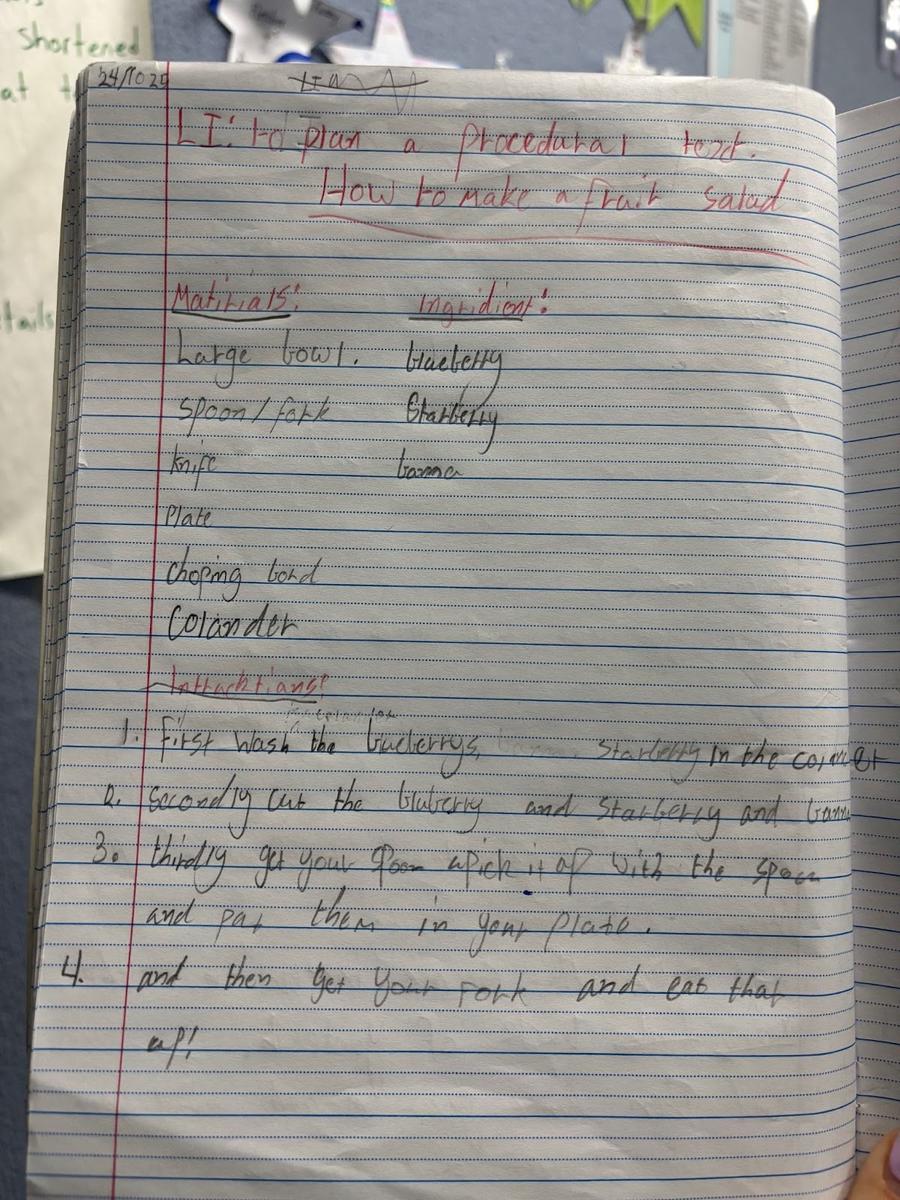 shortened
at t
tails
24/10 25
LI: to plan a procedural text.
How to make a fruit salad
Matirials: Ingridient:
Large bowl. blueberry
spoon/fork Starberry
knife banna
Plate
choping bord
Colander
Intructians:
1. First wash the blueberrys, starberry in the
2. Secondly cut the bluberry and starberry and bann
3. thirdly get your spoon apick it up with the spoon
and put them in your plate.
4. and then get your fork and eat that
up!